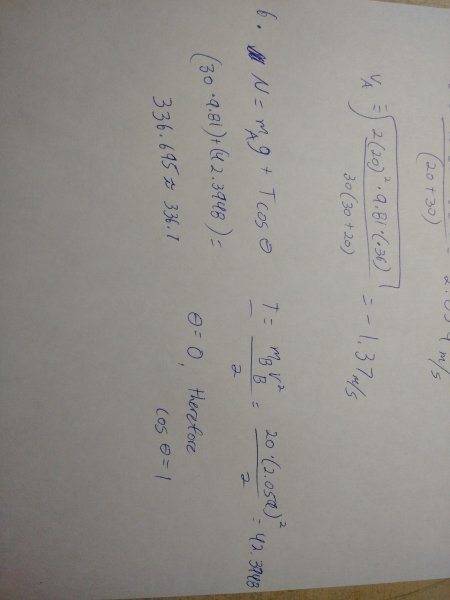 (20+30)
2.054 m/s
V_A = √(2(20)² · 9.81 · (.36) / 30(30+20)) = -1.37 m/s
6. N = m_A g + T cos θ
T = m_B V_B² / 2 = 20 · (2.058)² / 2 = 42.3948
(30 · 9.81) + (42.3948) =
θ = 0, therefore
336.695 ≈ 336.1
cos θ = 1